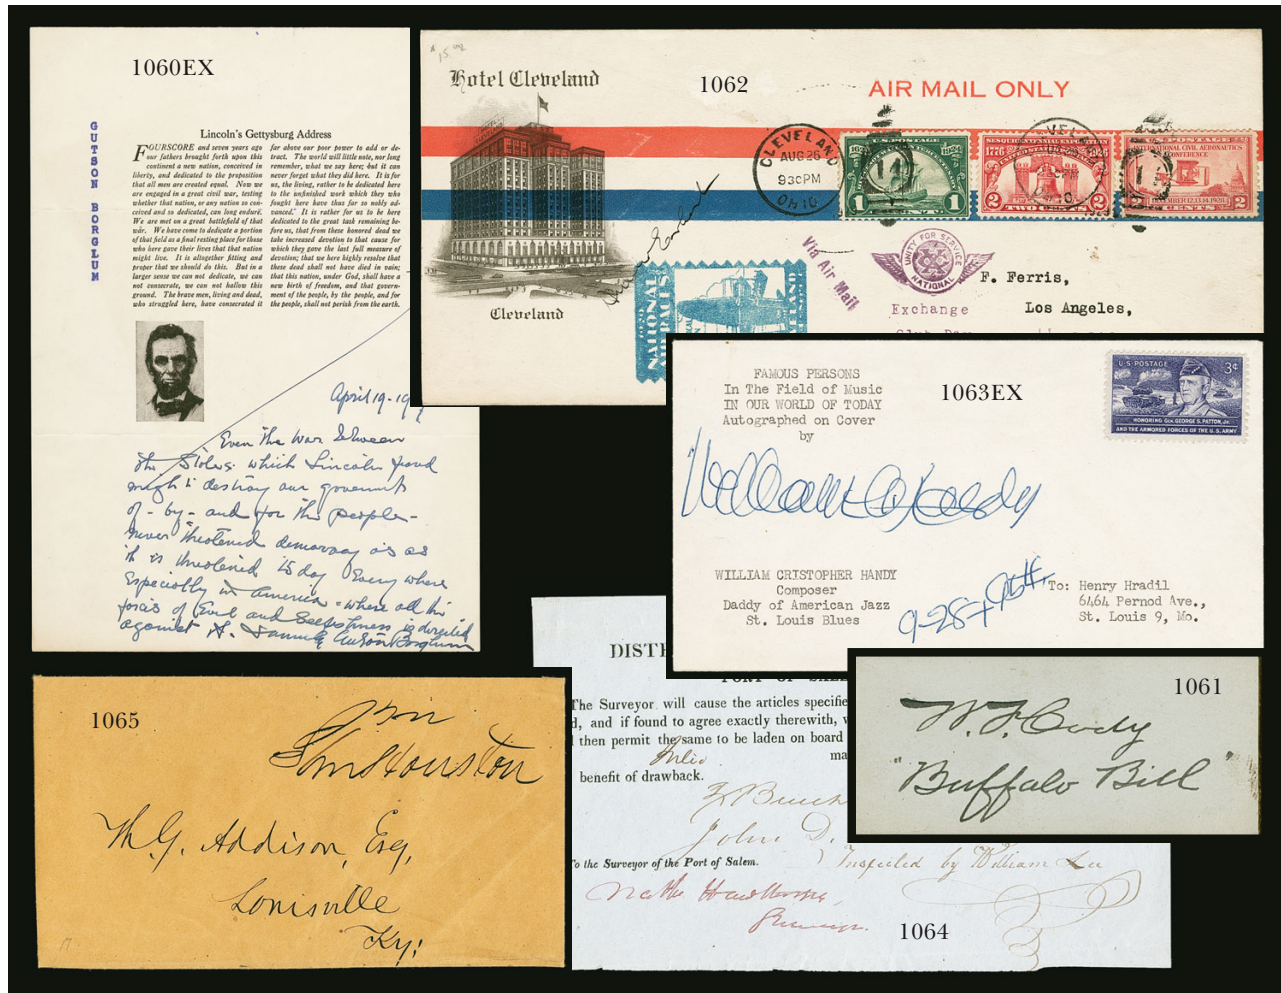 1060EX
GUTSON BORGLUM
Lincoln's Gettysburg Address
FOURSCORE and seven years ago
our fathers brought forth upon this
continent a new nation, conceived in
liberty, and dedicated to the proposition
that all men are created equal. Now we
are engaged in a great civil war, testing
whether that nation, or any nation so con-
ceived and so dedicated, can long endure.
We are met on a great battlefield of that
war. We have come to dedicate a portion
of that field as a final resting place for those
who here gave their lives that that nation
might live. It is altogether fitting and
proper that we should do this. But in a
larger sense we can not dedicate, we can
not consecrate, we can not hallow this
ground. The brave men, living and dead,
who struggled here, have consecrated it
far above our poor power to add or de-
tract. The world will little note, nor long
remember, what we say here; but it can
never forget what they did here. It is for
us, the living, rather to be dedicated here
to the unfinished work which they who
fought here have thus far so nobly ad-
vanced. It is rather for us to be here
dedicated to the great task remaining be-
fore us, that from these honored dead we
take increased devotion to that cause for
which they gave the last full measure of
devotion; that we here highly resolve that
these dead shall not have died in vain;
that this nation, under God, shall have a
new birth of freedom, and that govern-
ment of the people, by the people, and for
the people, shall not perish from the earth.
April 19-19
Even the War between
the States which Lincoln
might destroy our governmts
of - by - and for the people -
never threatened democracy as as
it is threatened to day Every where
Especially in America - where all the
forces of Evil and Selfishness is directed
against it. Gutzon Borglum
1062
Hotel Cleveland
Cleveland
AIR MAIL ONLY
CLEVELAND
AUG 26
930PM
OHIO
1624 1924
1 1
SESQUICENTENNIAL EXPOSITION
1776 1926
2 TWO CENTS 2
U.S. POSTAGE
INTERNATIONAL CIVIL AERONAUTICS
CONFERENCE
2 CENTS 2
DECEMBER 12.13.14.1928
Via Air Mail
UNITY FOR SERVICE
NATIONAL
Exchange
F. Ferris,
Los Angeles,
NATIONAL
1063EX
FAMOUS PERSONS
In The Field of Music
IN OUR WORLD OF TODAY
Autographed on Cover
by
U.S. POSTAGE 3¢
HONORING GEN. GEORGE S. PATTON, JR.
AND THE ARMORED FORCES OF THE U.S. ARMY
William C Handy
WILLIAM CRISTOPHER HANDY
Composer
Daddy of American Jazz
St. Louis Blues
To: Henry Hradil
6464 Pernod Ave.,
St. Louis 9, Mo.
1061
W. F. Cody
"Buffalo Bill"
1065
Sam Houston
Th. G. Addison, Esq,
Louisville
Ky:
DISTR
PORT OF SALE
The Surveyor will cause the articles specifie
d, and if found to agree exactly therewith,
then permit the same to be laden on board
benefit of drawback.
John D.
To the Surveyor of the Port of Salem.
Inspected by William Lee
Nath Hawthorne,
Surveyor.
1064